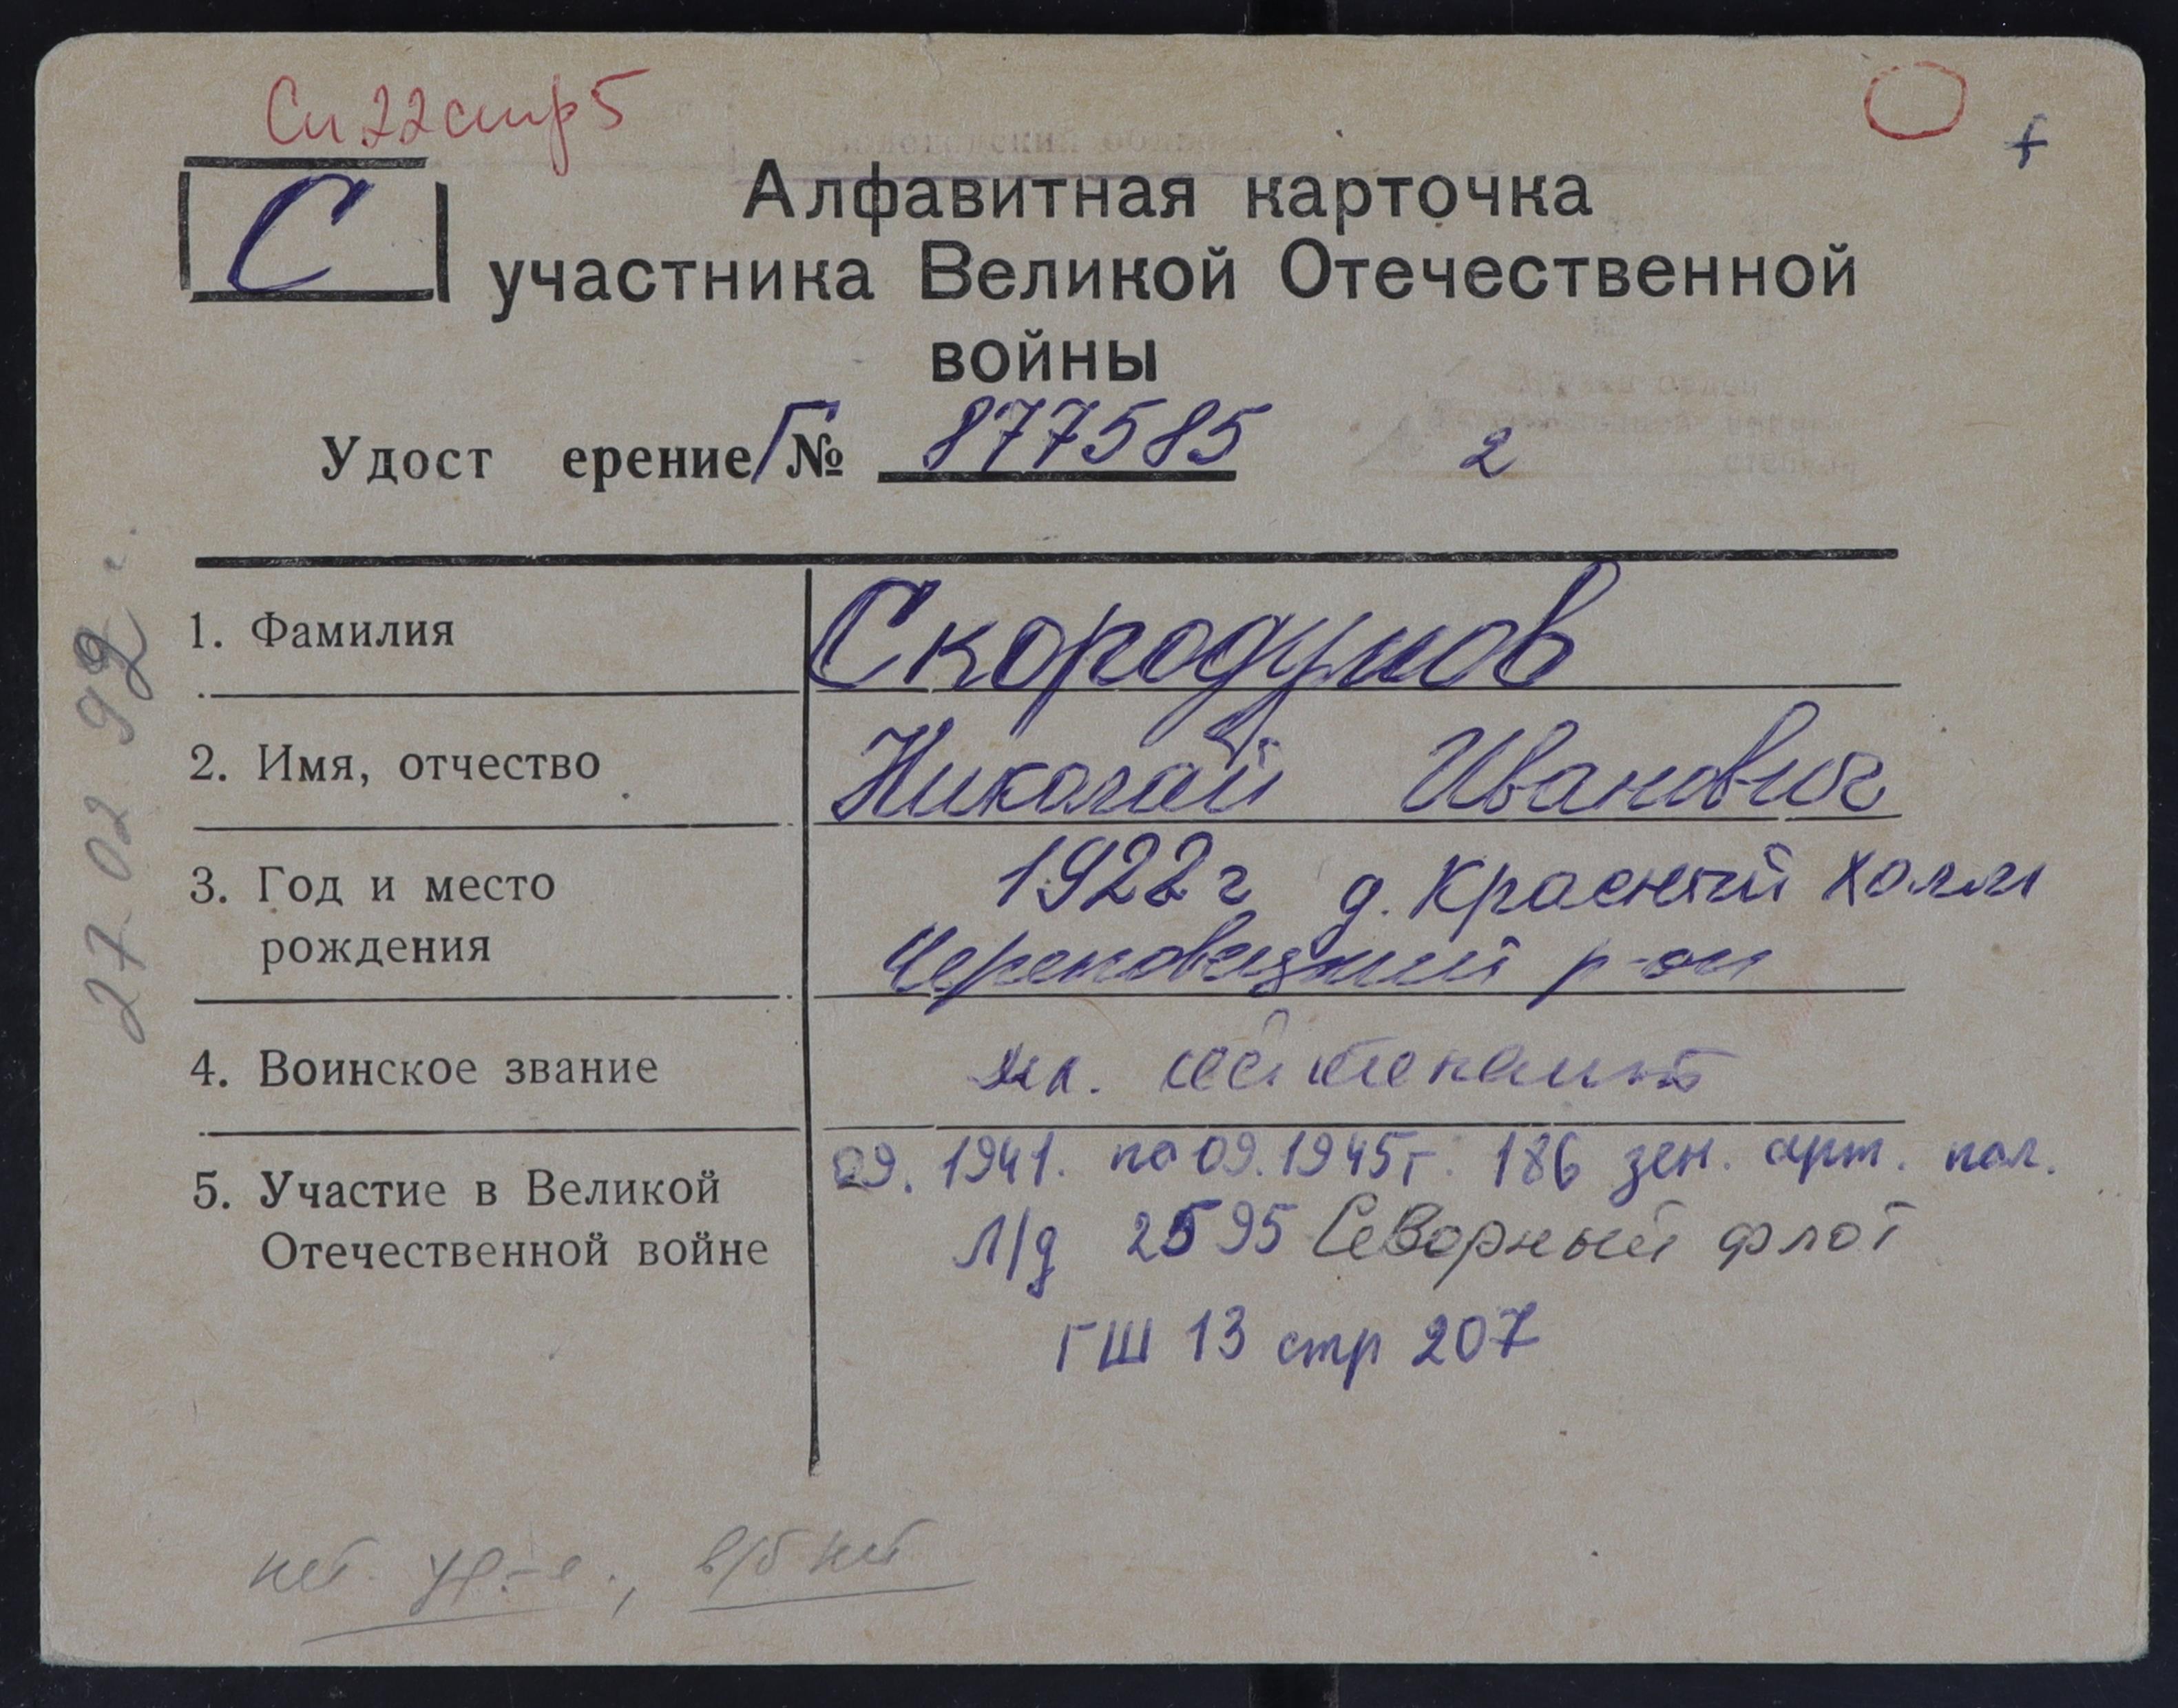 Сп 22 стр 5
С
Алфавитная карточка
участника Великой Отечественной
войны
Удост ерение Г № 877585 2
1. Фамилия Скородумов
2. Имя, отчество Николай Иванович
3. Год и место 1922 г д. Красный Холм
рождения Череповецкий р-он
4. Воинское звание мл. лейтенант
5. Участие в Великой 09. 1941. по 09. 1945 г. 186 зен. арт. пол.
Отечественной войне Л/д 2595 Северный флот
ГШ 13 стр 207
нет. уд-е., в/б нет
27 02 92 г.